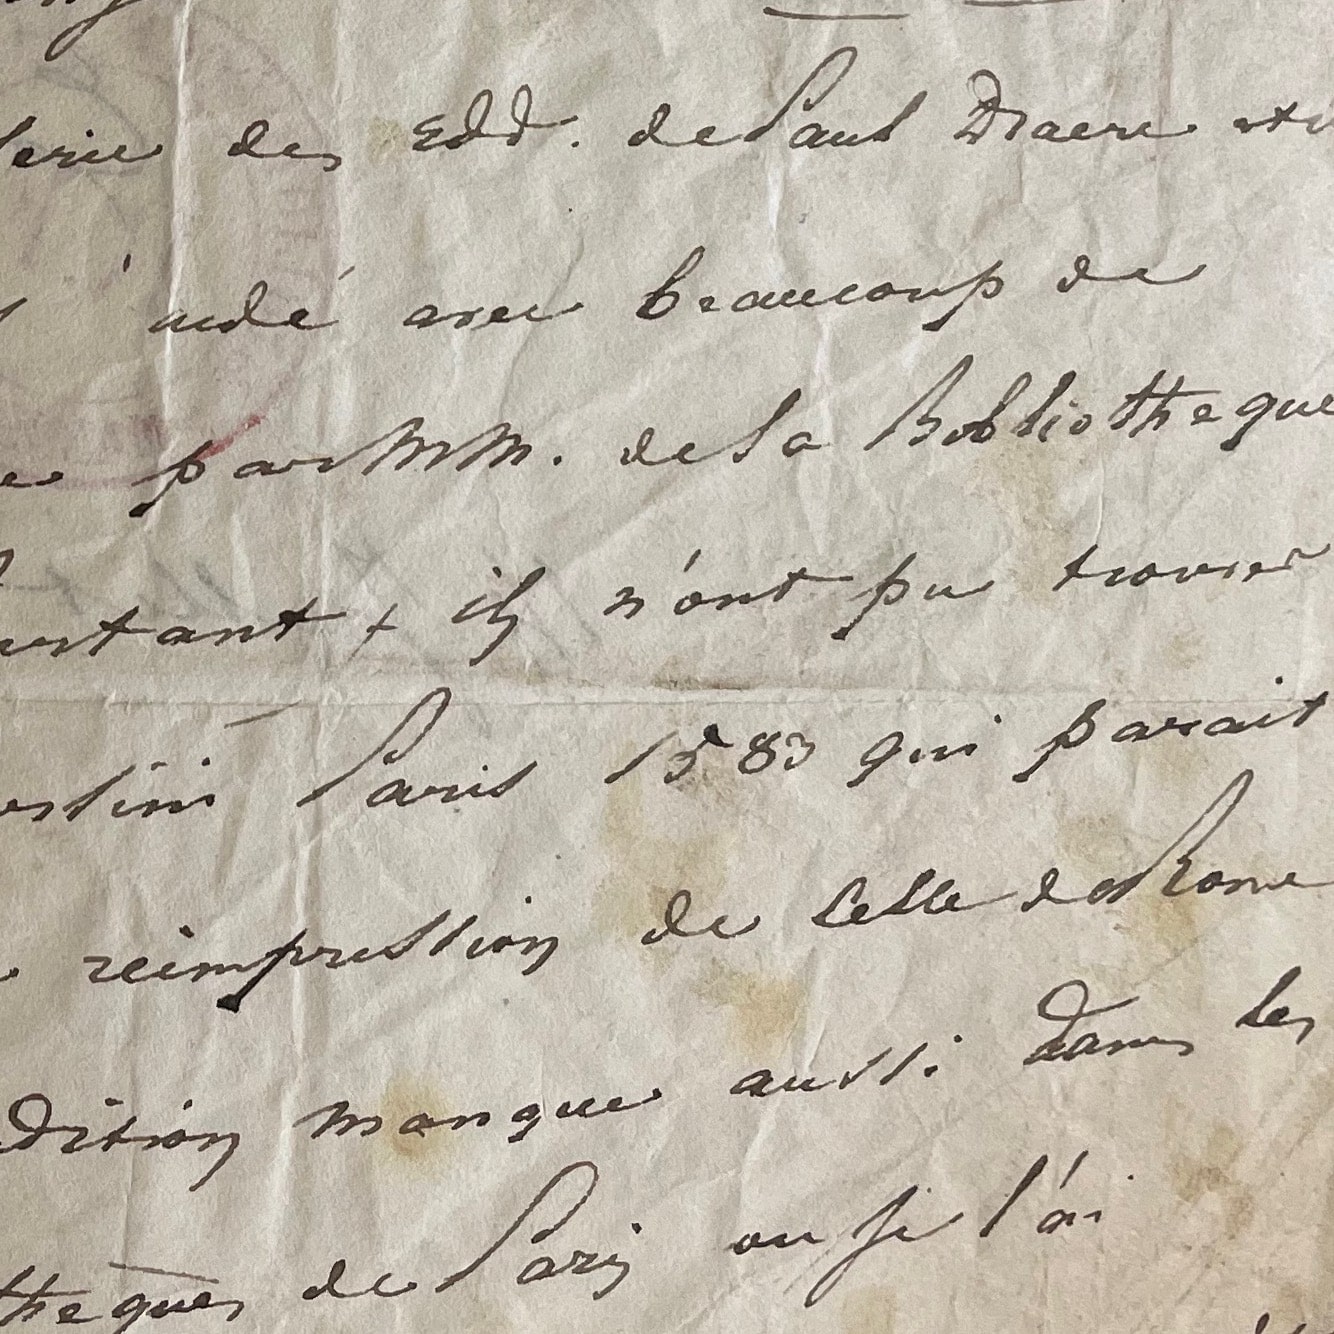 serie des Edd. de Paul
aidé avec beaucoup de
par MM. de la Bibliotheque
ils n'ont pu trouver
Paris 1583 qui parait
reimpression de celle de Rome
edition manque aussi dans les
theques de Paris ou je l'ai